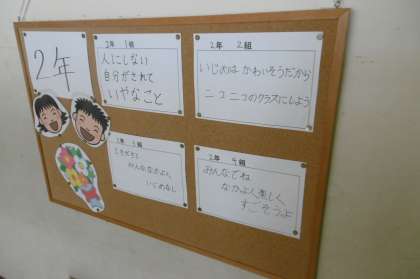 2年
2年 1組
人にしない
自分がされて
いやなこと
2年 2組
いじめは かわいそうだから
ニコニコのクラスにしよう
2年 3組
みんななかよく
いじめなし
2年 4組
みんなでね
なかよく楽しく
すごそうよ